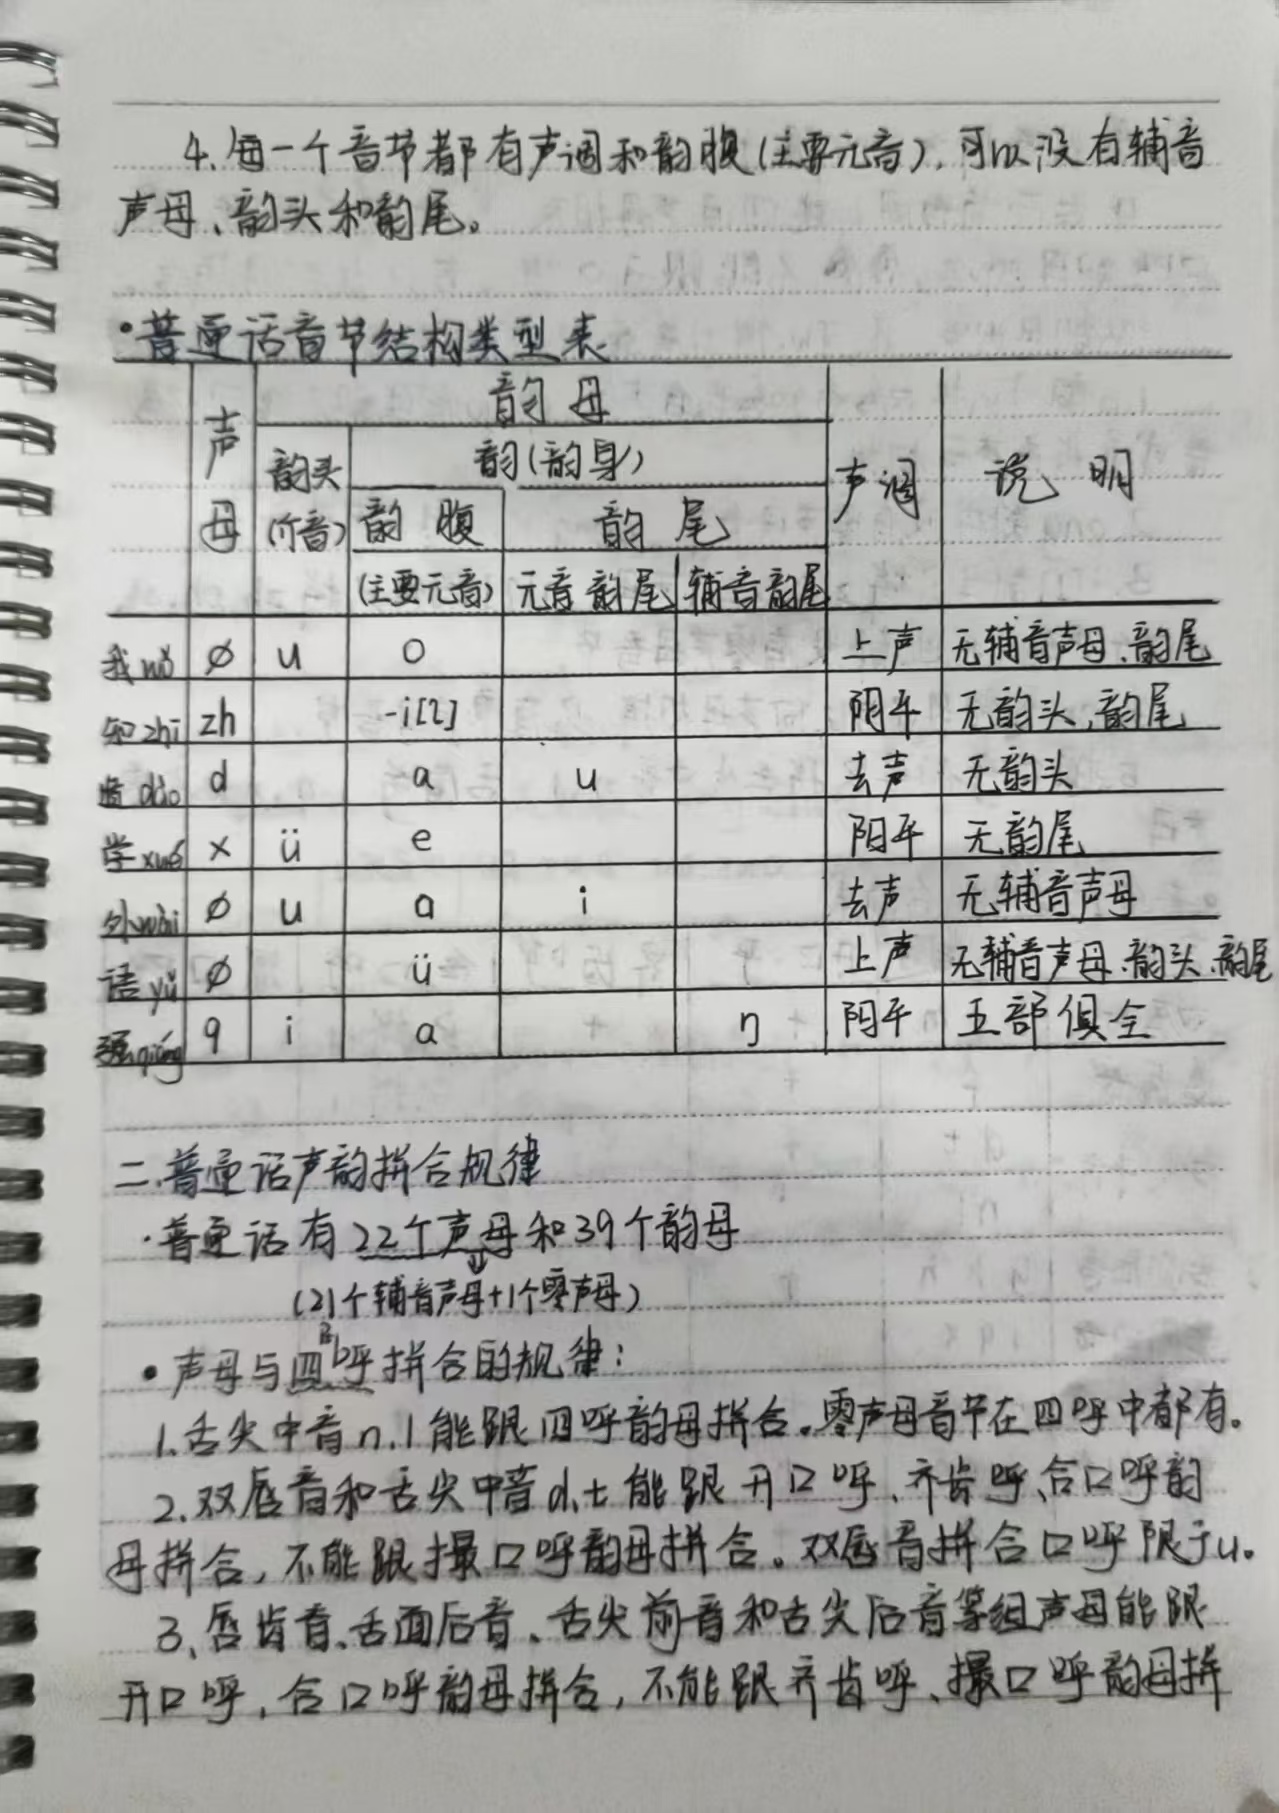 4.每一个音节都有声调和韵腹(主要元音),可以没有辅音
声母、韵头和韵尾。
·普通话音节结构类型表
声母 韵母 声调 说明
韵头(介音) 韵(韵身)
韵腹 韵尾
(主要元音) 元音韵尾 辅音韵尾
我wǒ ø u o 上声 无辅音声母、韵尾
知zhī zh -i[ʅ] 阴平 无韵头、韵尾
道dào d a u 去声 无韵头
学xué x ü e 阳平 无韵尾
外wài ø u a i 去声 无辅音声母
语yǔ ø ü 上声 无辅音声母、韵头、韵尾
强qiáng q i a ŋ 阳平 五部俱全
二.普通话声韵拼合规律
·普通话有22个声母和39个韵母
(21个辅音声母+1个零声母)
·声母与四呼拼合的规律:
1.舌尖中音n.l能跟四呼韵母拼合。零声母音节在四呼中都有。
2.双唇音和舌尖中音d、t能跟开口呼、齐齿呼、合口呼韵
母拼合,不能跟撮口呼韵母拼合。双唇音拼合口呼限于u。
3、唇齿音、舌面后音、舌尖前音和舌尖后音等组声母能跟
开口呼,合口呼韵母拼合,不能跟齐齿呼、撮口呼韵母拼